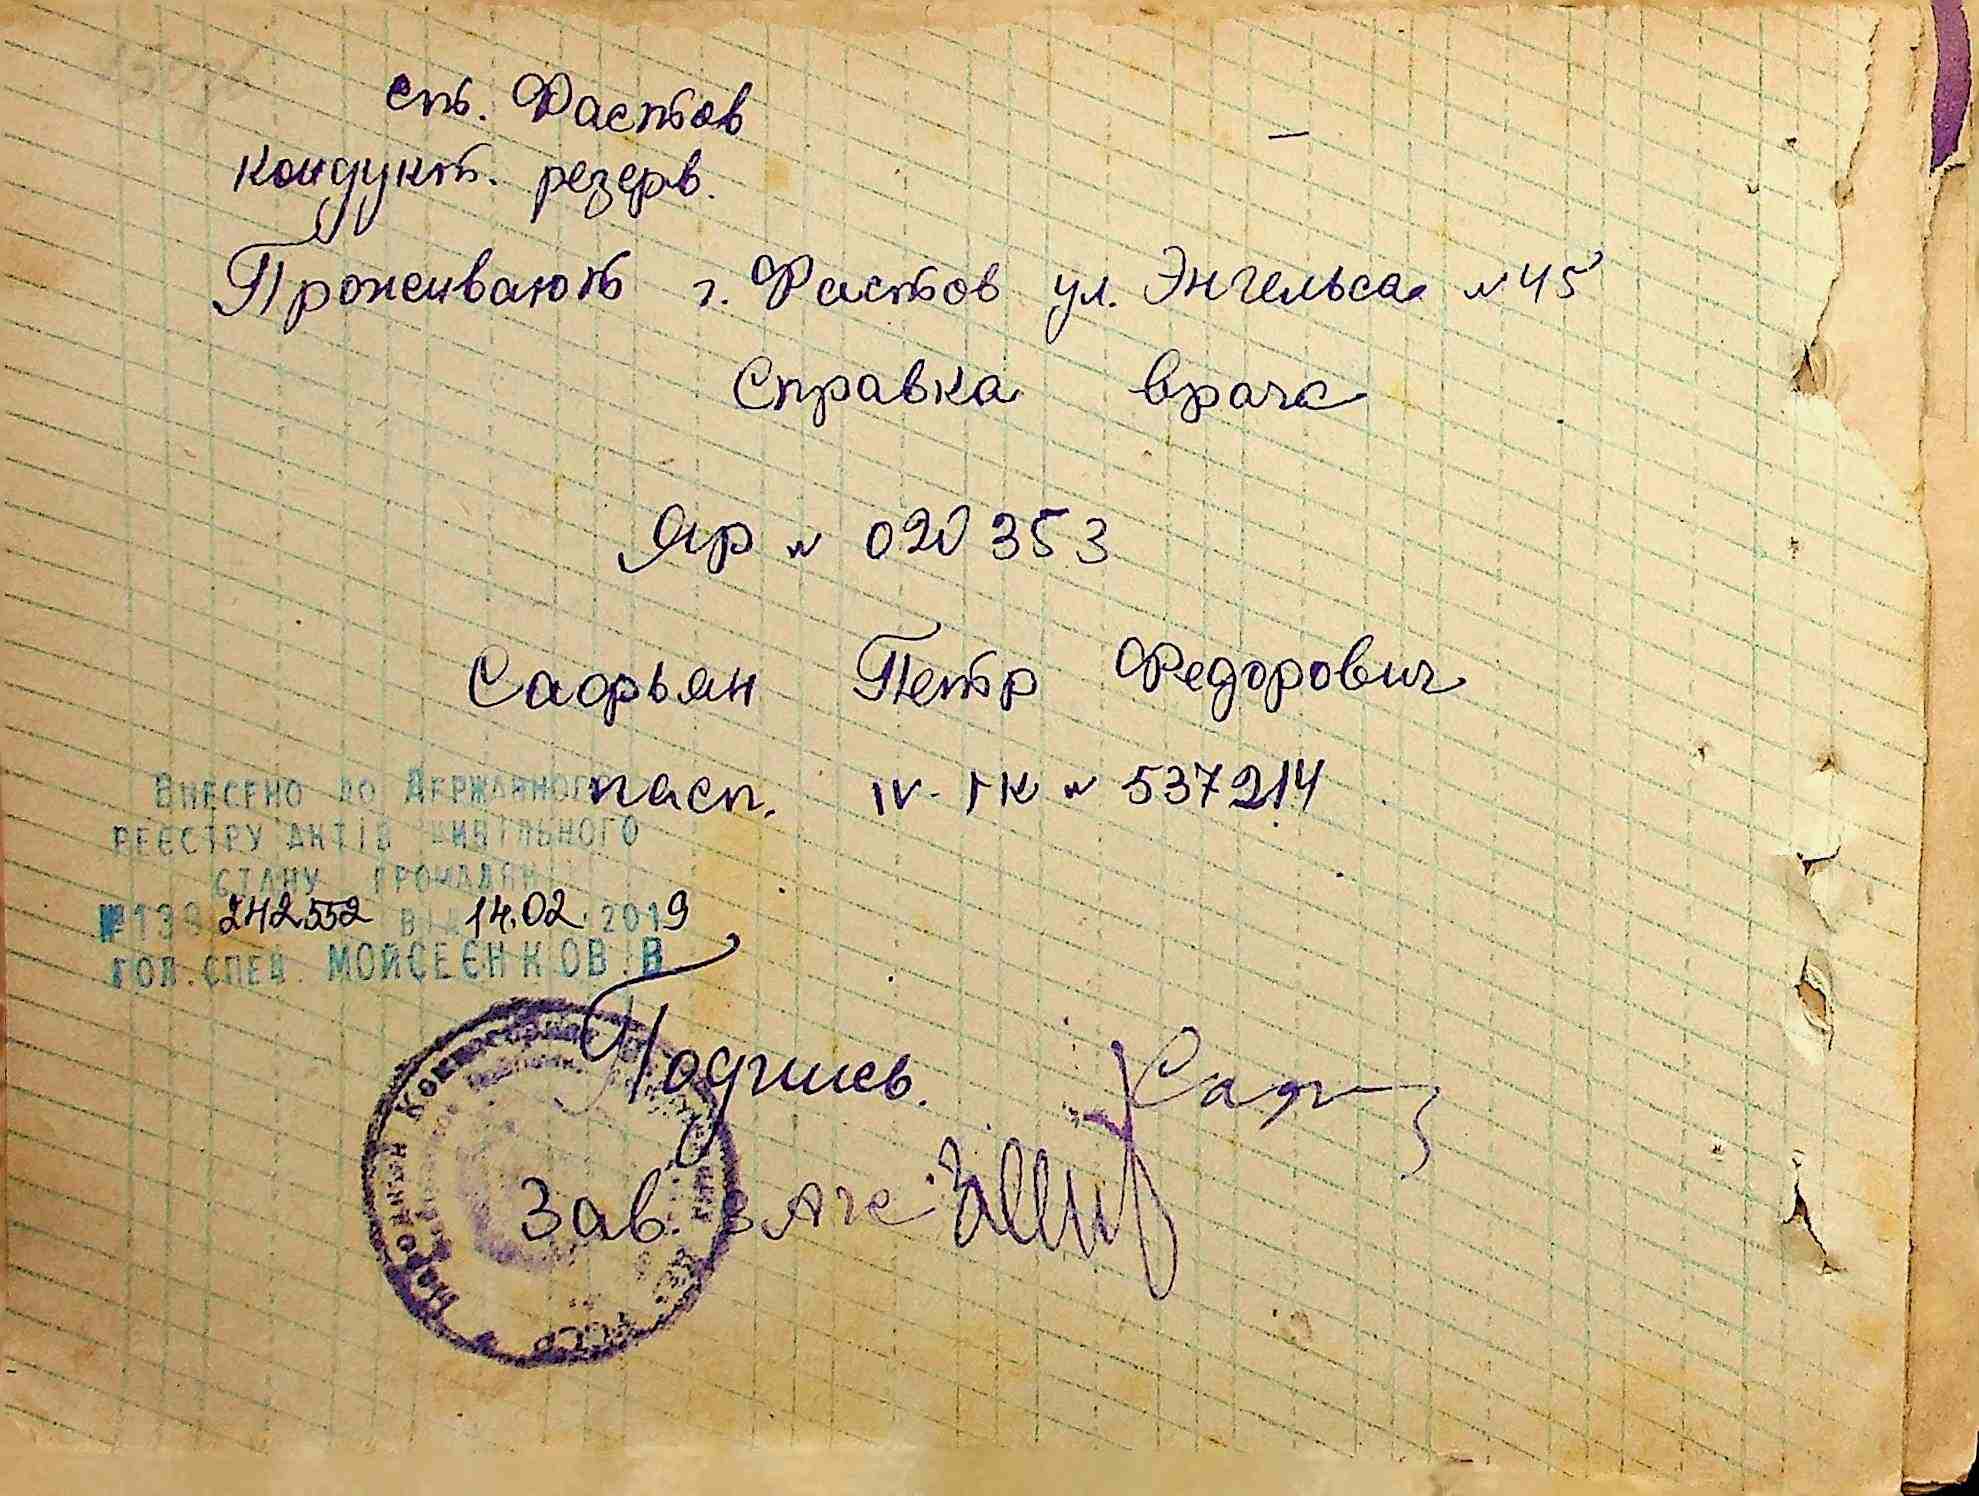 ст. Фастов
кондукт. резерв.
Проживают г. Фастов ул. Энгельса №45
Справка врача
ЯР № 020353
Сафрьян Петр Федорович
пасп. IV-ГК № 537214
Внесено до Державного
реєстру актів цивільного
стану громадян
№ 13 242552 від 14.02.2019
Гол.спец. МОЙСЕЄНКО В.В
Подпись.
Зав. загс
Народный Комиссариат